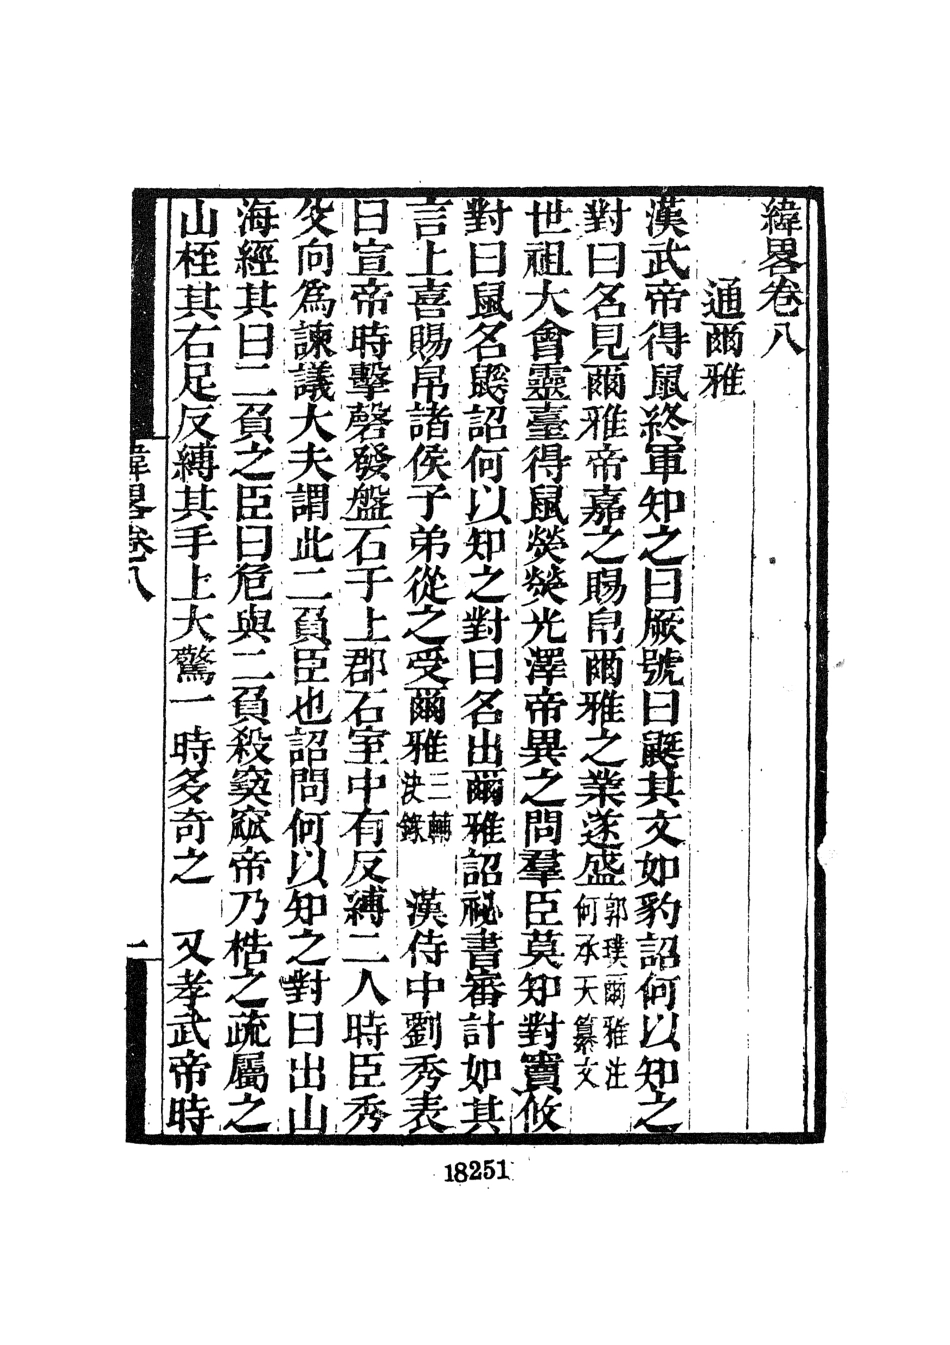 緯畧卷八
通爾雅
漢武帝得鼠終軍知之曰厥號曰鼮其文如豹詔何以知之
對曰名見爾雅帝嘉之賜帛爾雅之業遂盛郭璞爾雅注何承天纂文
世祖大會靈臺得鼠熒熒光澤帝異之問羣臣莫知對竇攸
對曰鼠名鼮詔何以知之對曰名出爾雅詔祕書審計如其
言上喜賜帛諸侯子弟從之受爾雅三輔決錄 漢侍中劉秀表
曰宣帝時擊磬發盤石于上郡石室中有反縛二人時臣秀
父向爲諫議大夫謂此二負臣也詔問何以知之對曰出山
海經其曰二負之臣曰危與二負殺窫窳帝乃梏之疏屬之
山桎其右足反縛其手上大驚一時多奇之 又孝武帝時
緯畧卷八
一
18251